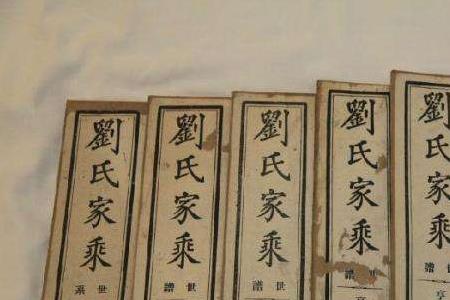 劉氏家乘
世系
劉氏家乘
世譜
劉氏家乘
世譜
劉氏家乘
世譜
劉氏家乘
世譜
亨